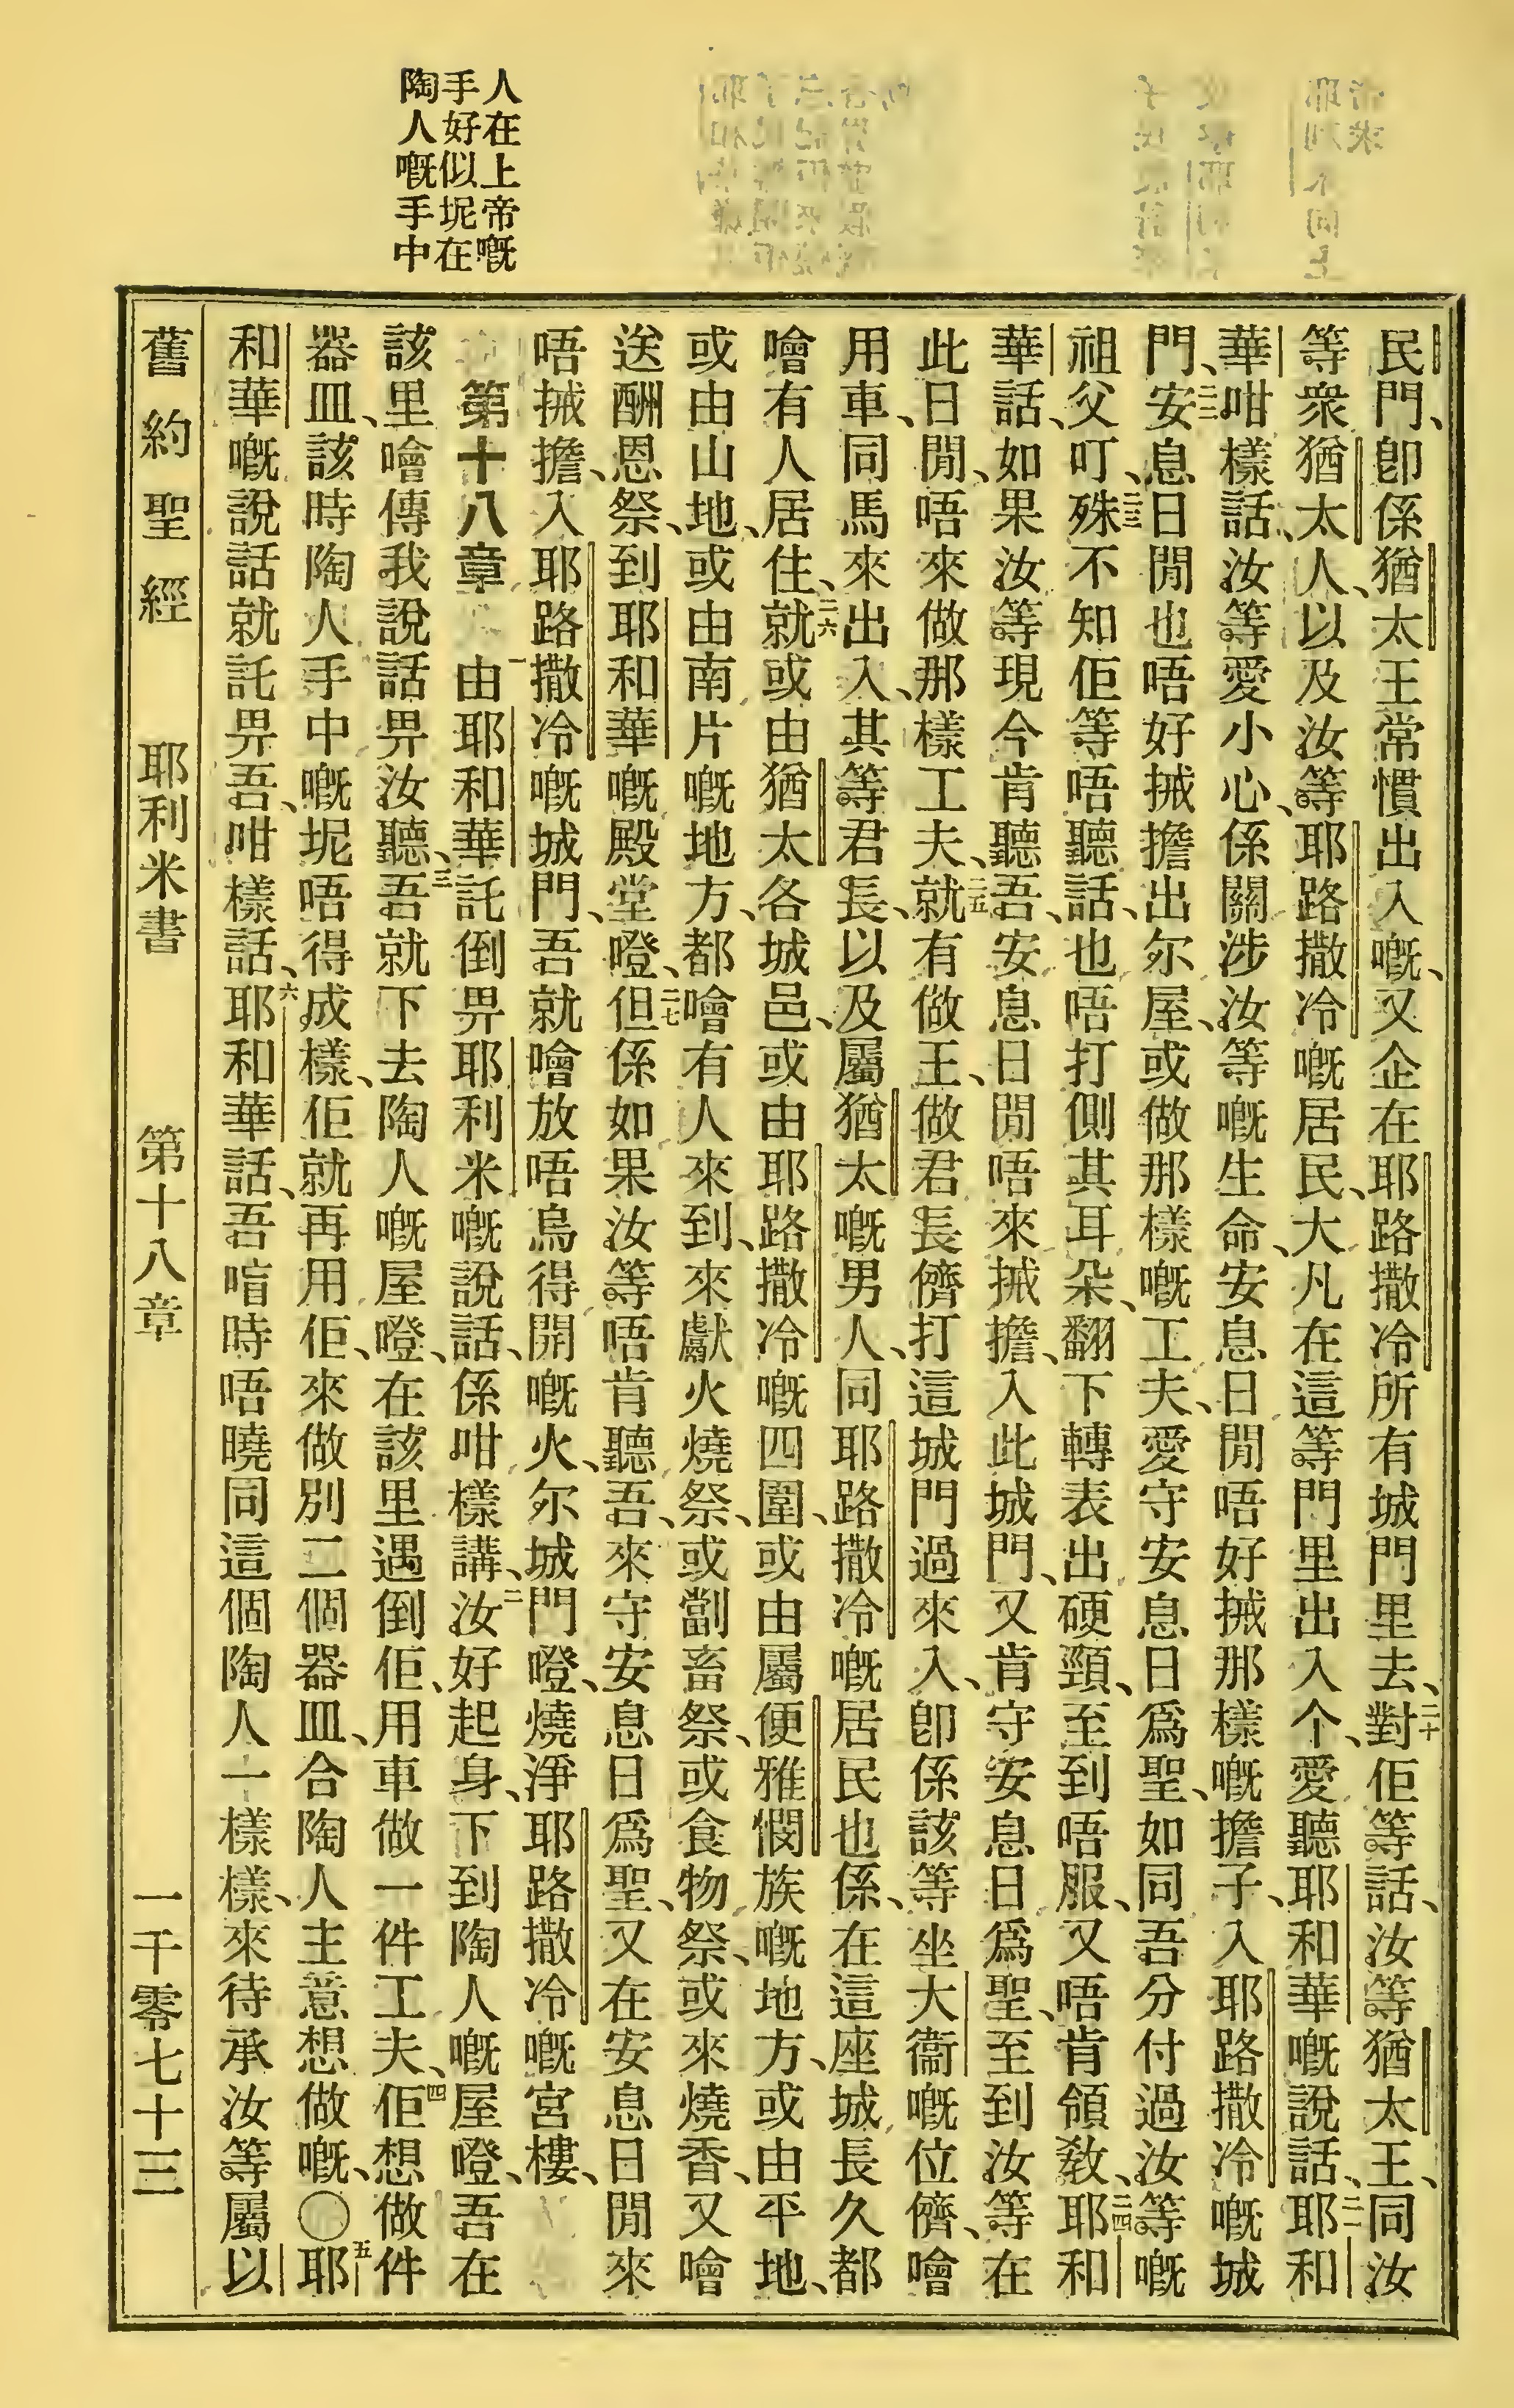 人在上帝嘅
手好似坭在
陶人嘅手中
民門、卽係猶太王常慣出入嘅、又企在耶路撒冷所有城門里去、二十對佢等話、汝等猶太王、同汝
等衆猶太人、以及汝等耶路撒冷嘅居民、大凡在這等門里出入个、愛聽耶和華嘅說話、二一耶和
華咁樣話、汝等愛小心、係關涉汝等嘅生命、安息日閒唔好搣那樣嘅擔子、入耶路撒冷嘅城
門、二二安息日閒也唔好搣擔出尔屋、或做那樣嘅工夫、愛守安息日爲聖、如同吾分付過汝等嘅
祖父叮、二三殊不知佢等唔聽話、也唔打側其耳朵、翻下轉表出硬頸、至到唔服、又唔肯領敎、二四耶和
華話、如果汝等現今肯聽吾、安息日閒唔來搣擔、入此城門、又肯守安息日爲聖、至到汝等在
此日閒、唔來做那樣工夫、二五就有做王、做君長儕打這城門過來入、卽係該等坐大衞嘅位儕、噲
用車、同馬來出入、其等君長、以及屬猶太嘅男人、同耶路撒冷嘅居民也係、在這座城長久都
噲有人居住、二六就或由猶太各城邑、或由耶路撒冷嘅四圍、或由屬便雅憫族嘅地方、或由平地、
或由山地、或由南片嘅地方、都噲有人來到、來獻火燒祭、或劏畜祭、或食物祭、或來燒香、又噲
送酬恩祭、到耶和華嘅殿堂嶝、二七但係如果汝等唔肯聽吾、來守安息日爲聖、又在安息日閒來
唔搣擔、入耶路撒冷嘅城門、吾就噲放唔烏得開嘅火、尔城門嶝、燒淨耶路撒冷嘅宮樓、
第十八章 一由耶和華託倒畀耶利米嘅說話、係咁樣講、二汝好起身、下到陶人嘅屋嶝、吾在
該里噲傳我說話畀汝聽、三吾就下去陶人嘅屋嶝、在該里遇倒佢、用車做一件工夫、四佢想做件
器皿、該時陶人手中嘅坭唔得成樣、佢就再用佢、來做別二個器皿、合陶人主意想做嘅、〇五耶
和華嘅說話就託畀吾、咁樣話、六耶和華話、吾喑時唔曉同這個陶人一樣樣、來待承汝等屬以
舊約聖經 耶利米書 第十八章 一千零七十三